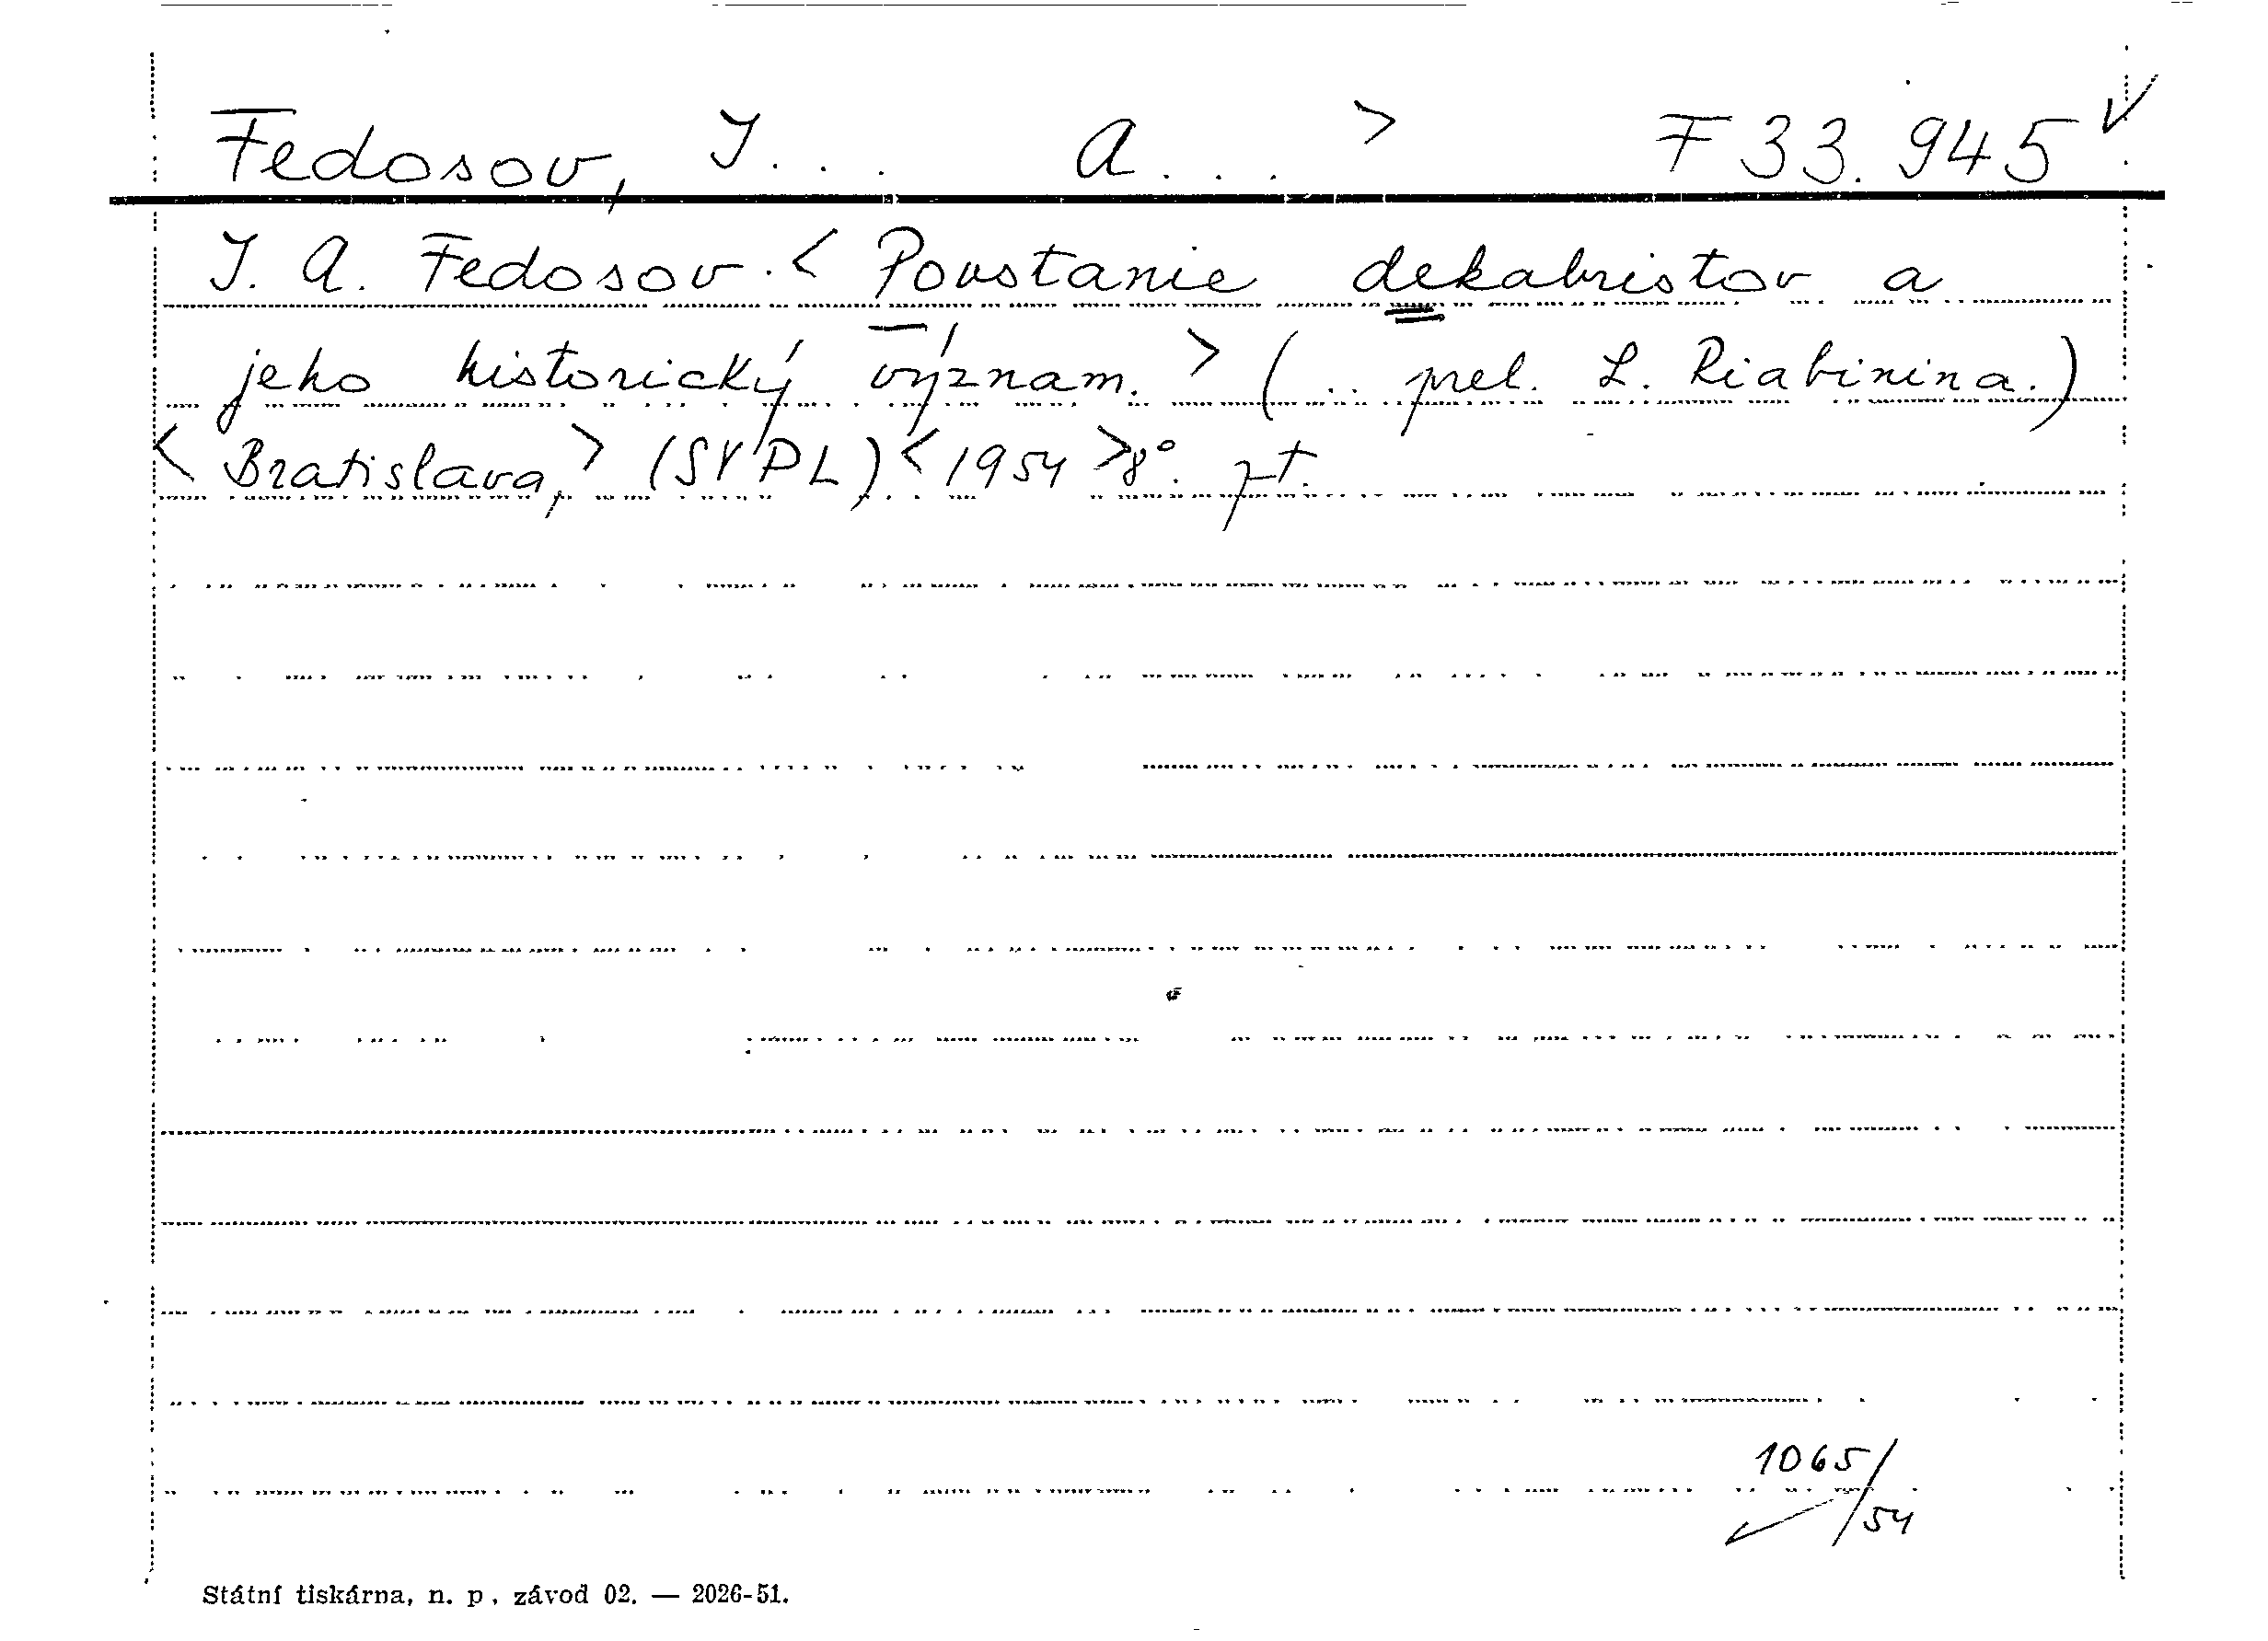 Fedosov, I... A... > F 33.945 √
I. A. Fedosov. < Povstanie dekabristov a
jeho historický význam. > (.. prel. L. Riabinina.)
< Bratislava, > (SVPL) < 1954 > 8°. pt.
1065/
/54
Státní tiskárna, n. p., závod 02. — 2026-51.